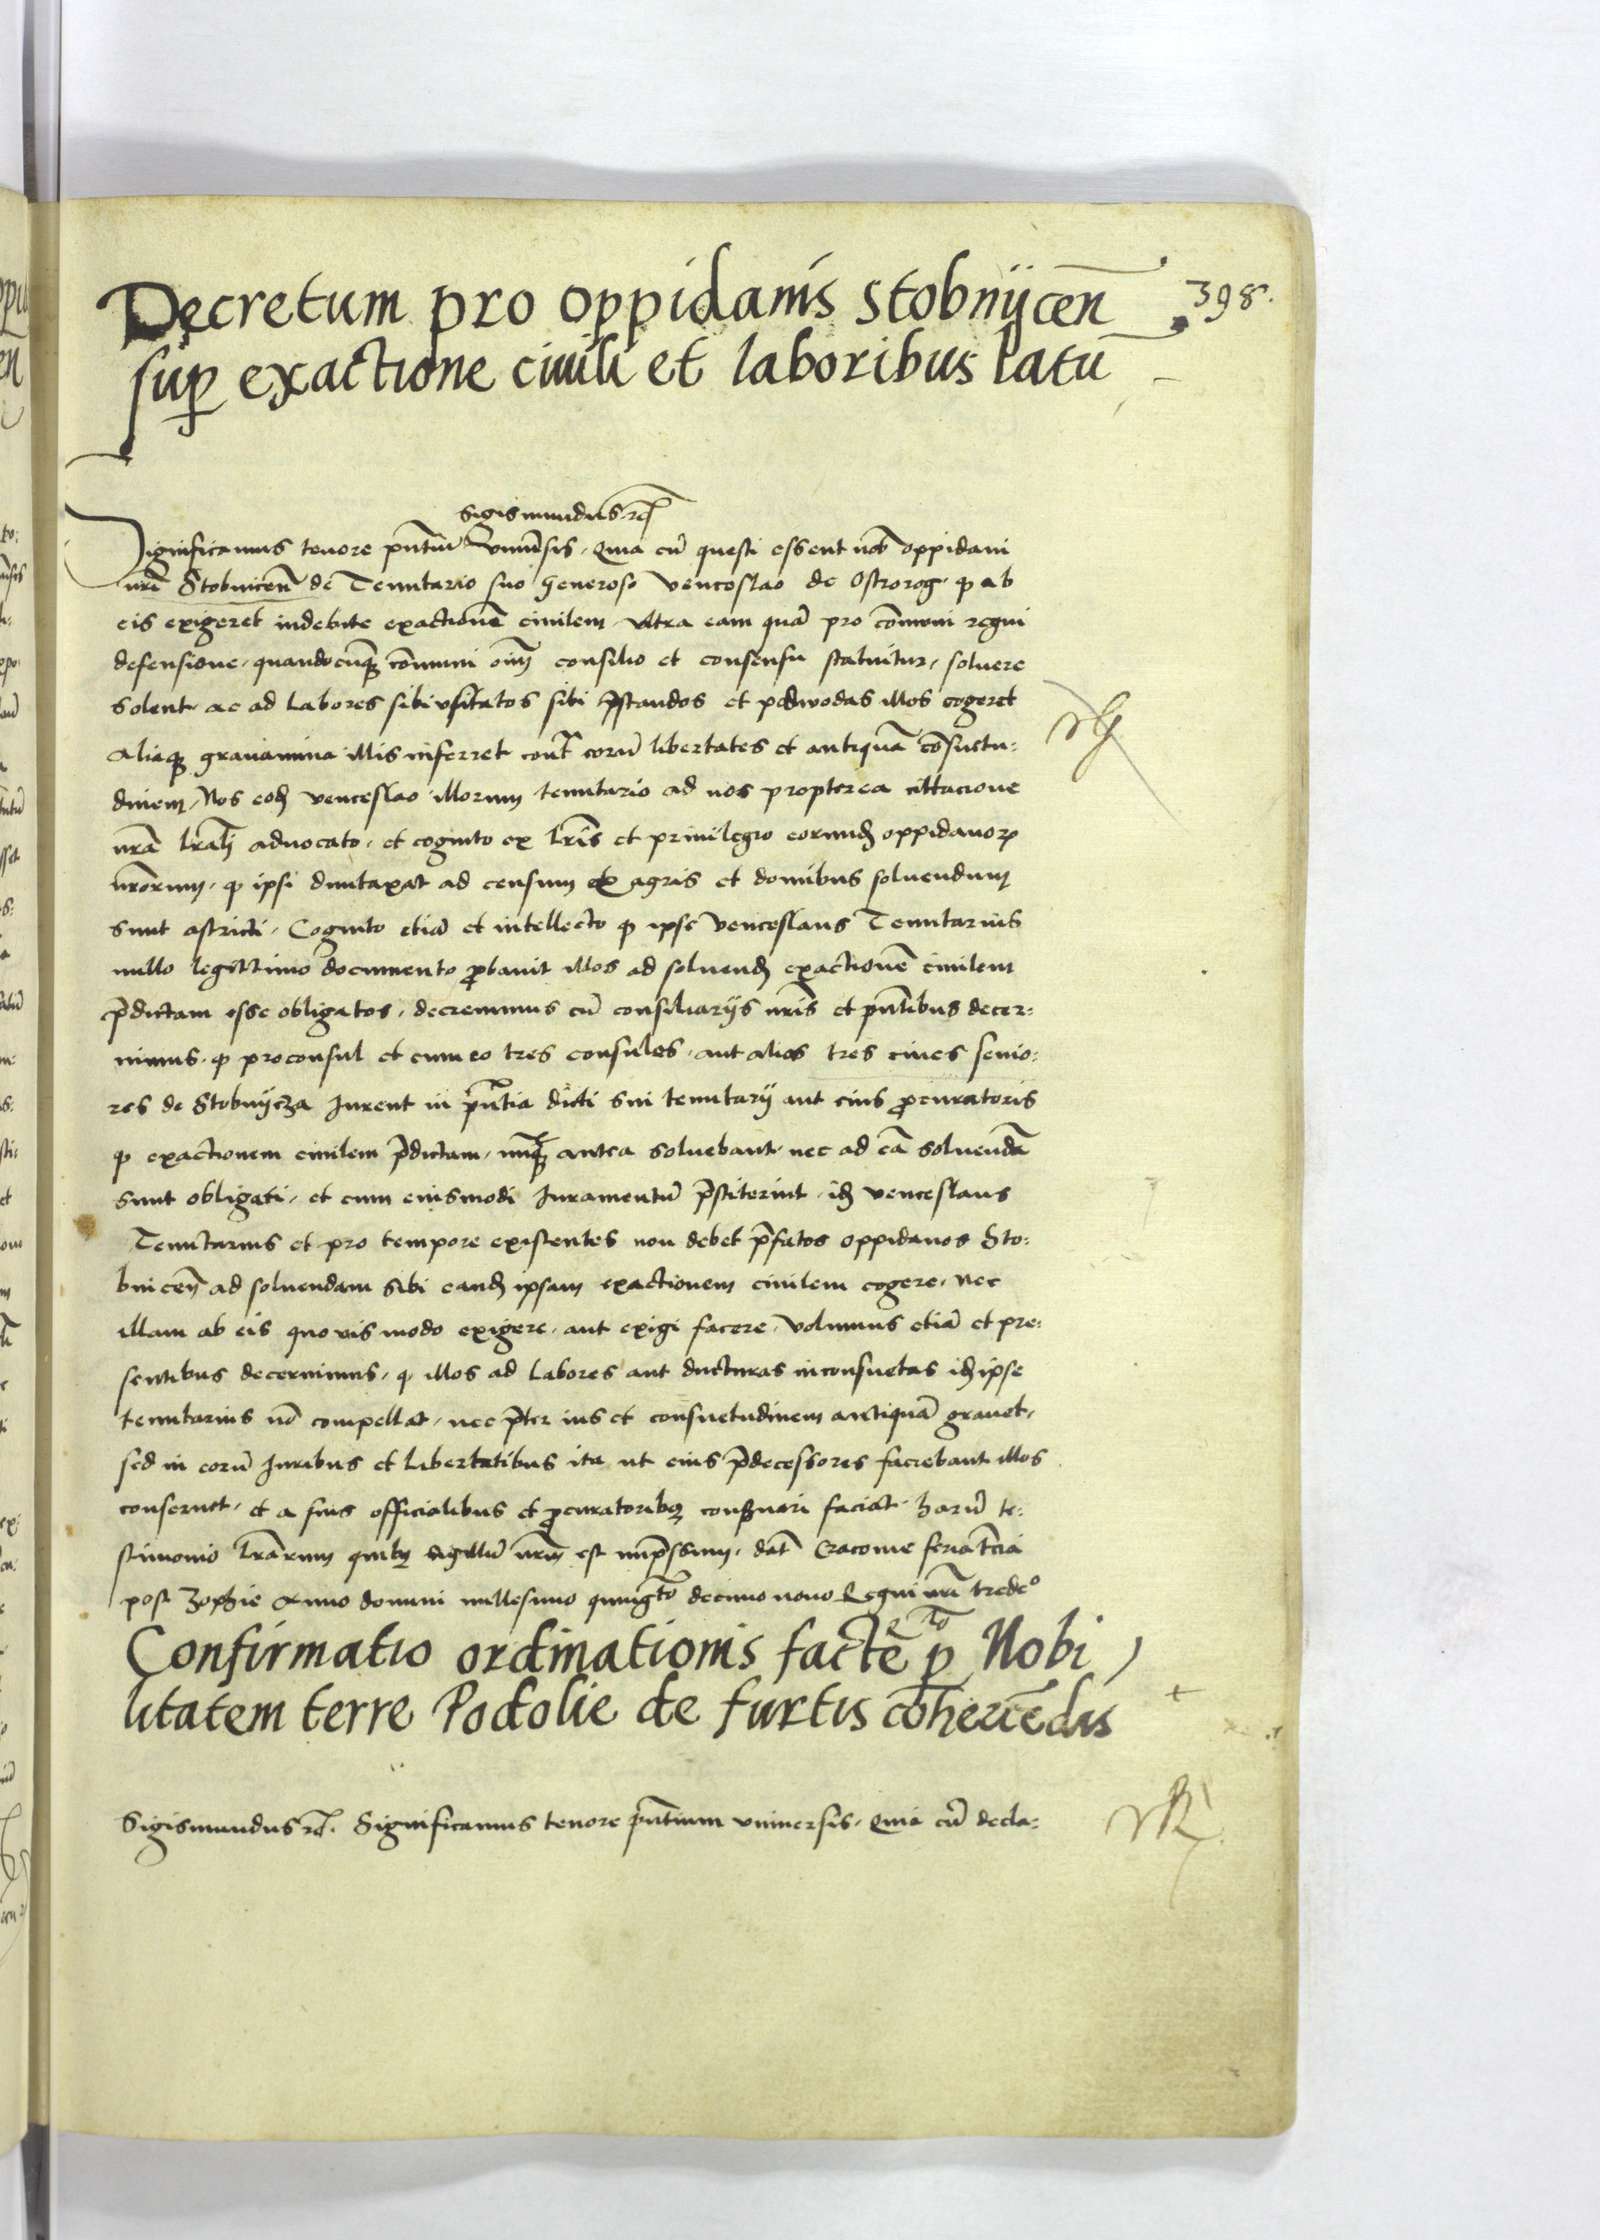 398.
Decretum pro oppidanis Stobnijcen̄
sup exactione ciuili et laboribus latū
Sigismundus rex
Significamus tenore pn̄tiū Vniu̅sis, Quia cū questi essent nob̄ oppidani
nr̄i Stobnicen̄ de Tenutario suo Generoso Venceslao de Ostrorog, q ab
eis exigeret indebite exactionē ciuilem, vltra eam quā pro cōmuni regni
defensione, quandocūq̨ cōmuni oīm consilio et consensu statuitur, soluere
solent, ac ad labores sibi vsitatos sibi p̄standos et podwodas illos cogeret
Aliaq̨ grauamina illis inferret cont̄ eorū libertates et antiquā cōsuetu:
dinem, Nos eod̄ Venceslao illorum tenutario ad nos propterea cittacione
nr̄a lr̄ali aduocato, et cognito ex lr̄is et priuilegio eorund̄ oppidanoꝝ
nr̄orum, q ipsi duntaxat ad censum ex agris et domibus soluendum
sunt astricti, Cognito etiā et intellecto q ipse Venceslaus Tenutarius
nullo legittimo documento ꝓbauit illos ad soluend̄ exactionē ciuilem
p̄dictam esse obligatos, decreuimus cū consiliarijs nr̄is et pn̄tibus decer:
nimus, q proconsul et cum eo tres consules, aut alios tres ciues senio:
res de Stobnijcza Iurent in pn̄tia dicti sui tenutarij aut eius ꝓcuratoris
q exactionem ciuilem p̄dictam, nunq̨ antea soluebant, nec ad eā soluendā
sunt obligati, et cum eiusmodi Iuramentū p̄stiterint, id̄ Venceslaus
Tenutarius et pro tempore existentes non debet p̄fatos oppidanos Sto:
bnicen̄ ad soluendam sibi eand̄ ipsam exactionem ciuilem cogere, nec
illam ab eis quouis modo exigere, aut exigi facere, Volumus etiā et pre:
sentibus decernimus, q illos ad labores aut ducturas inconsuetas id̄ ipse
tenutarius nō compellat, nec p̄ter ius et consuetudinem antiquā grauet,
sed in eorū Iuribus et libertatibus ita ut eius p̄decessores faciebant illos
conseruet, et a suis officialibus et ꝓcuratoribꝫ consꝰuari faciat, harū te:
stimonio lr̄arum quibꝫ sigillū nr̄um est imp̄ssum, dat̄ Cracouie feria t̄cia
post Zophie Anno domini millesimo quing̅to decimo nono Regni nr̄i tredeº
Confirmatio ordinationis factē p Nobi
litatem terre Podolie de furtis cōhercēdis
Sigismundus rex. Significamus tenore pn̄tium vniuersis, Quia cū decla: